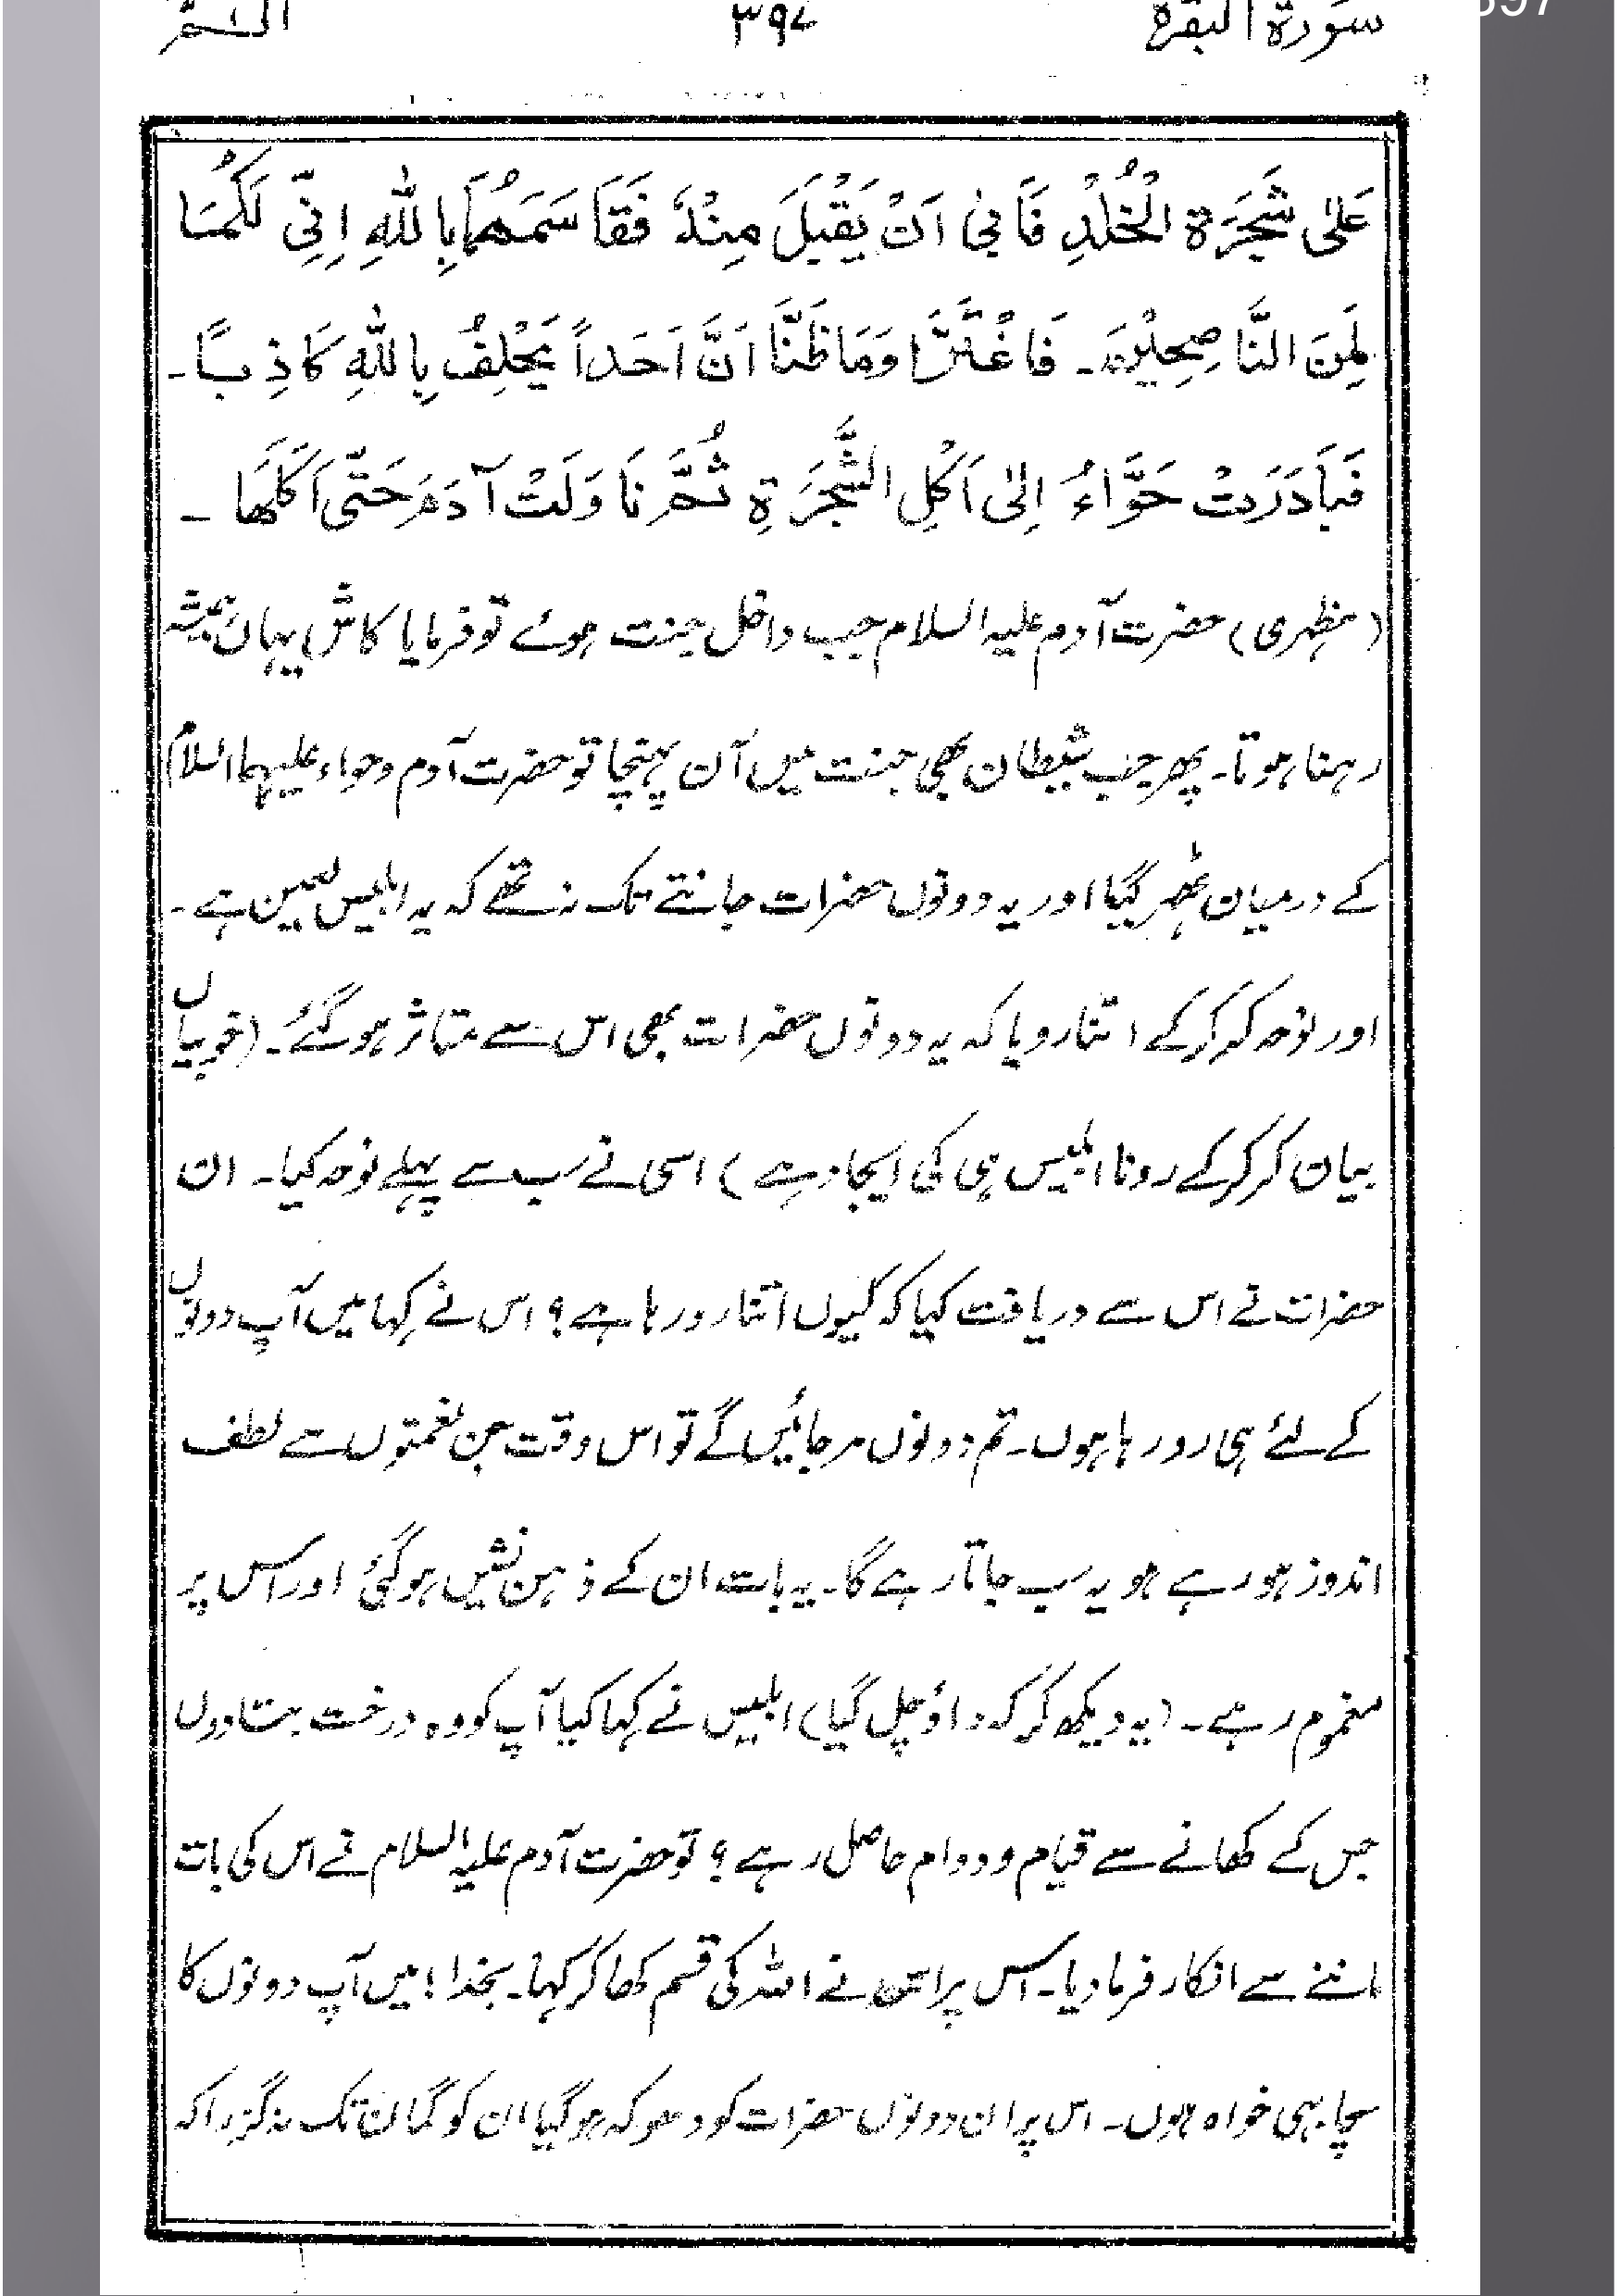 سورۃ البقرۃ ۳۹۷ الٓـمّٓ
عَلٰى شَجَرَةِ الْخُلْدِ فَاَبٰى اَنْ يَقْبَلَ مِنْهُ فَقَاسَمَهُمَا بِاللهِ اِنِّي لَكُمَا
لَمِنَ النَّاصِحِيْنَ۔ فَاغْتَرَّا وَمَا ظَنَّا اَنَّ اَحَداً يَحْلِفُ بِاللهِ كَاذِبًا۔
فَبَادَرَتْ حَوَّاءُ اِلٰى اَكْلِ الشَّجَرَةِ ثُمَّ نَاوَلَتْ آدَمَ حَتّٰى اَكَلَهَا ۔
(مظہری) حضرت آدم علیہ السلام جب داخل جنت ہوئے تو فرمایا کاش یہاں ہمیشہ
رہنا ہوتا۔ پھر جب شیطان بھی جنت میں آن پہنچا تو حضرت آدم وحواء علیہما السلام
کے درمیان ٹھہر گیا اور یہ دونوں حضرات جانتے تک نہ تھے کہ یہ ابلیس لعین ہے۔
اور نوحہ کر کر کے اتنا رویا کہ یہ دونوں حضرات بھی اس سے متاثر ہو گئے۔ (خوبیاں
بیان کر کر کے رونا ابلیس ہی کی ایجاد ہے) اسی نے سب سے پہلے نوحہ کیا۔ ان
حضرات نے اس سے دریافت کیا کہ کیوں اتنا رو رہا ہے؟ اس نے کہا میں آپ دونوں
کے لئے ہی رو رہا ہوں۔ تم دونوں مر جائیں گے تو اس وقت جن نعمتوں سے لطف
اندوز ہو رہے ہو یہ سب جاتا رہے گا۔ یہ بات ان کے ذہن نشیں ہو گئی اور اس پر
مغموم رہے۔ (یہ دیکھ کر کہ داؤ چل گیا) ابلیس نے کہا کیا آپ کو وہ درخت بتا دوں
جس کے کھانے سے قیام و دوام حاصل رہے؟ تو حضرت آدم علیہ السلام نے اس کی بات
ماننے سے انکار فرما دیا۔ اس پر اس نے اللہ کی قسم کھا کر کہا۔ بخدا! میں آپ دونوں کا
سچا بہی خواہ ہوں۔ اس پر ان دونوں حضرات کو دھوکہ ہو گیا ان کو گمان تک نہ گزرا کہ